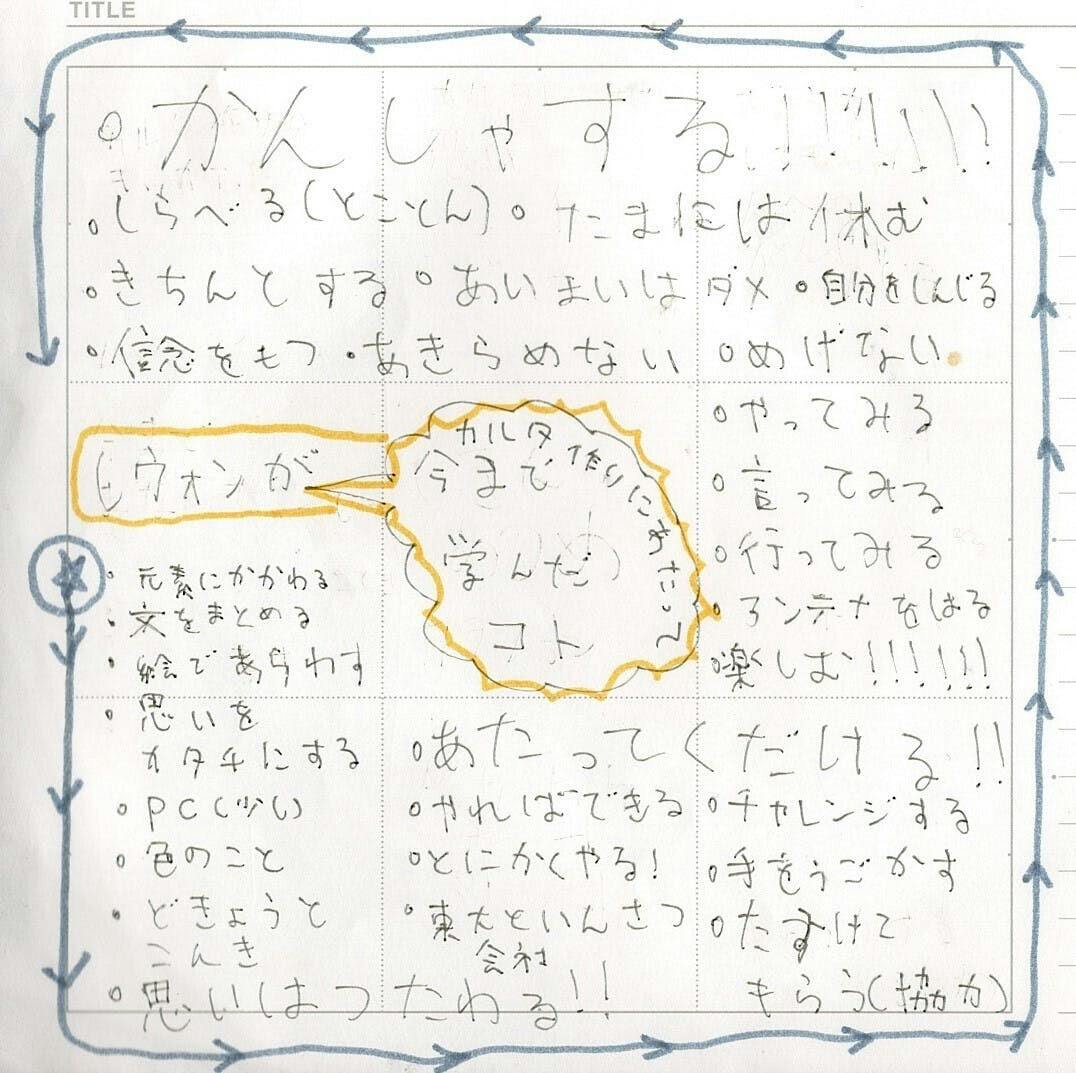 TITLE
・かんしゃする!!!!!!!
・しらべる(とことん) ・たまには休む
・きちんとする ・あいまいはダメ ・自分をしんじる
・信念をもつ ・あきらめない ・めげない
ヒウォンが
カルタ作りにあたって
今まで
学んだ
コト
・やってみる
・言ってみる
・行ってみる
・アンテナをはる
・楽しむ!!!!!!
・元素にかかわる
・文をまとめる
・絵であらわす
・思いを
カタチにする
・PC(少い)
・色のこと
・どきょうと
こんき
・思いはつたわる!!
・あたってくだける!!
・やればできる
・とにかくやる!
・東大といんさつ
会社
・チャレンジする
・手をうごかす
・たすけて
もらう(協力)